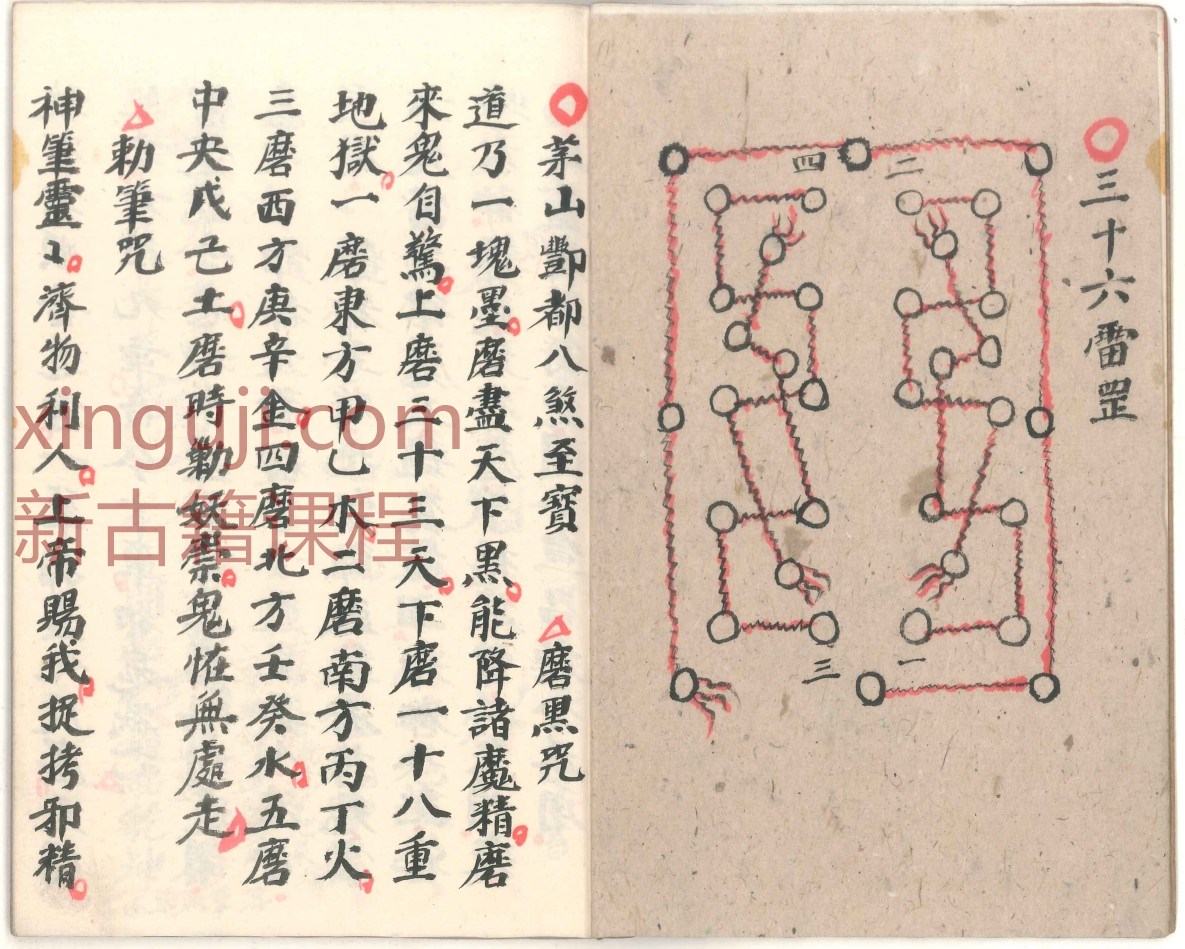 三十六雷罡
二
四
一
三
茅山酆都八煞至寶 磨黑咒
道乃一塊墨磨盡天下黑能降諸魔精磨
來鬼自驚上磨三十三天下磨一十八重
地獄一磨東方甲乙木二磨南方丙丁火
三磨西方庚辛金四磨北方壬癸水五磨
中央戊己土磨時勦妖祟鬼怪無處走
勅筆咒
神筆靈〻濟物利人上帝賜我捉拷邪精
xingujj.com
新古籍课程